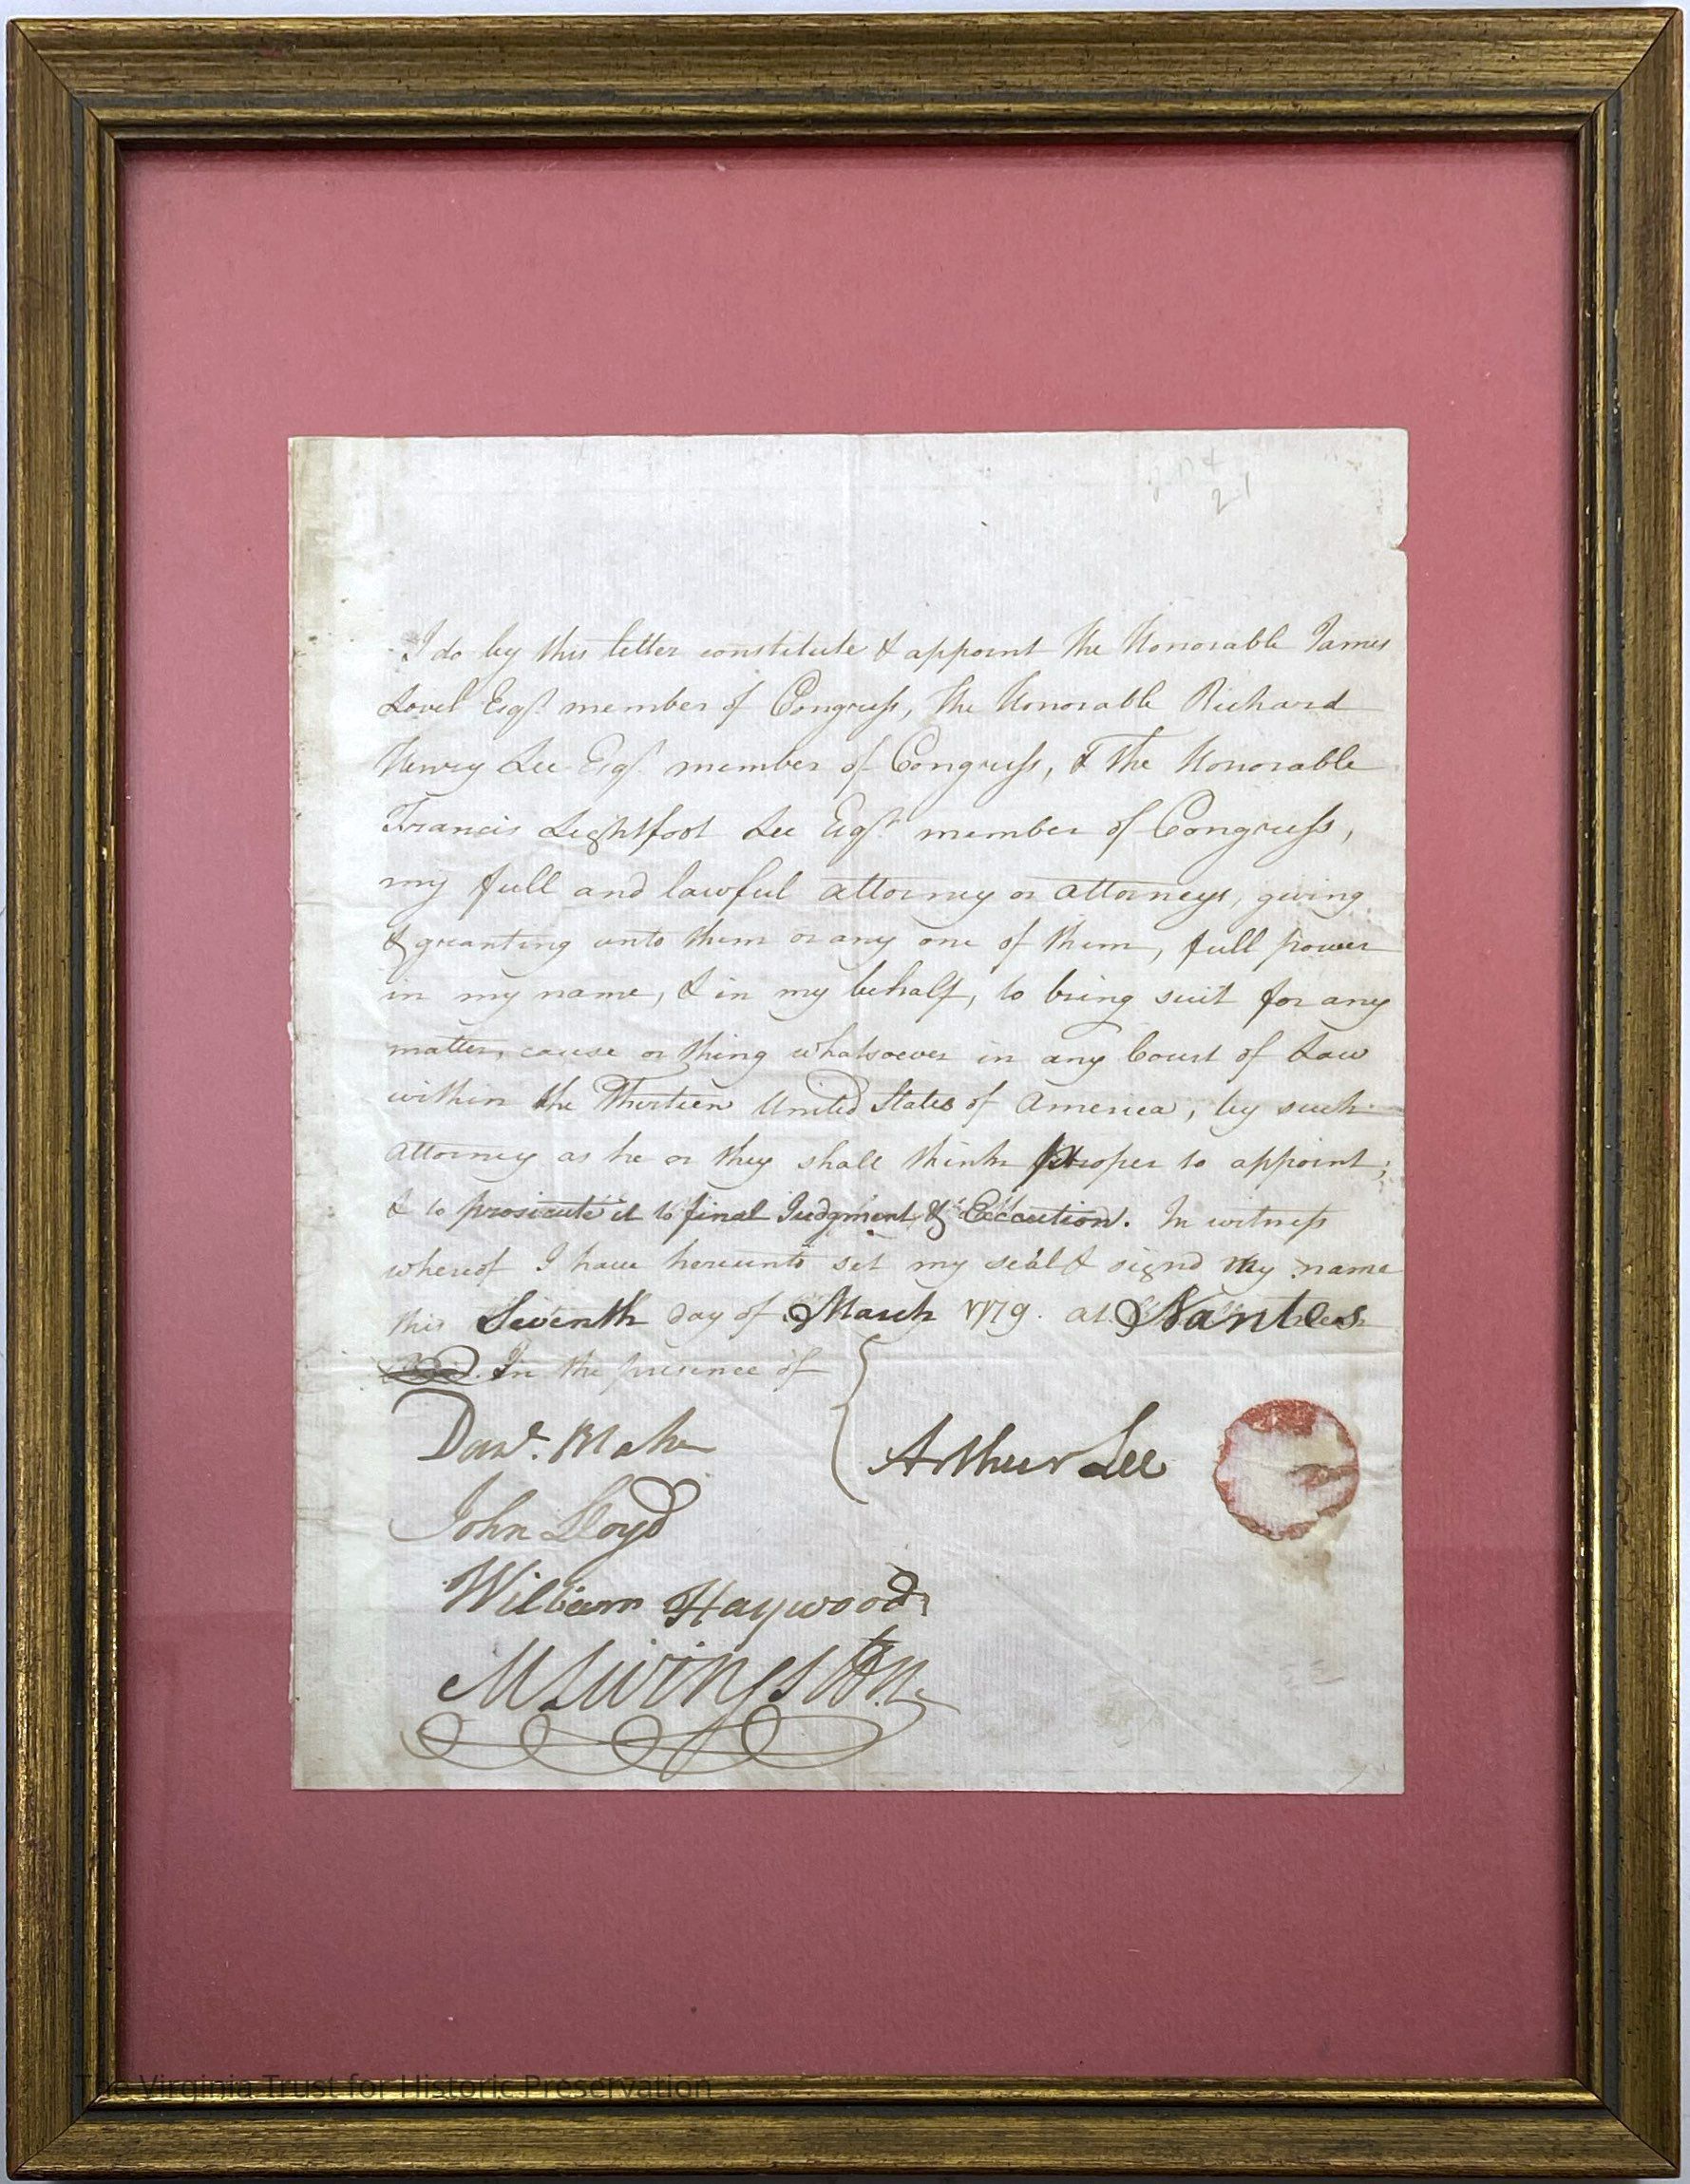 I do by this letter constitute & appoint the Honorable James
Lovel Esqr. member of Congress, the Honorable Richard
Henry Lee Esqr. member of Congress, & the Honorable
Francis Lightfoot Lee Esqr. member of Congress,
my full and lawful attorney or attorneys, giving
& granting unto them or any one of them, full power
in my name, & in my behalf, to bring suit for any
matter, cause or thing whatsoever in any Court of Law
within the Thirteen United States of America, by such
attorney as he or they shall think proper to appoint;
& to prosecute it to final Judgment & Execution. In witness
whereof I have hereunto set my seal & signd my name
this Seventh day of March 1779. at Nantes
In the presence of
Danl.
Arthur Lee
John Lloyd
William Haywood
M Livingston
21
The Virginia Trust for Historic Preservation